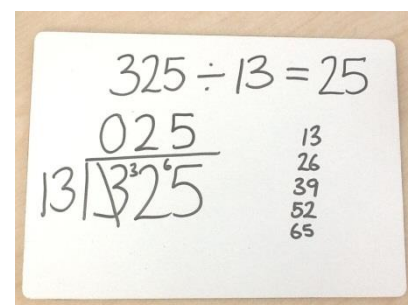 325 ÷ 13 = 25
025
13 3³2⁶5
13
26
39
52
65